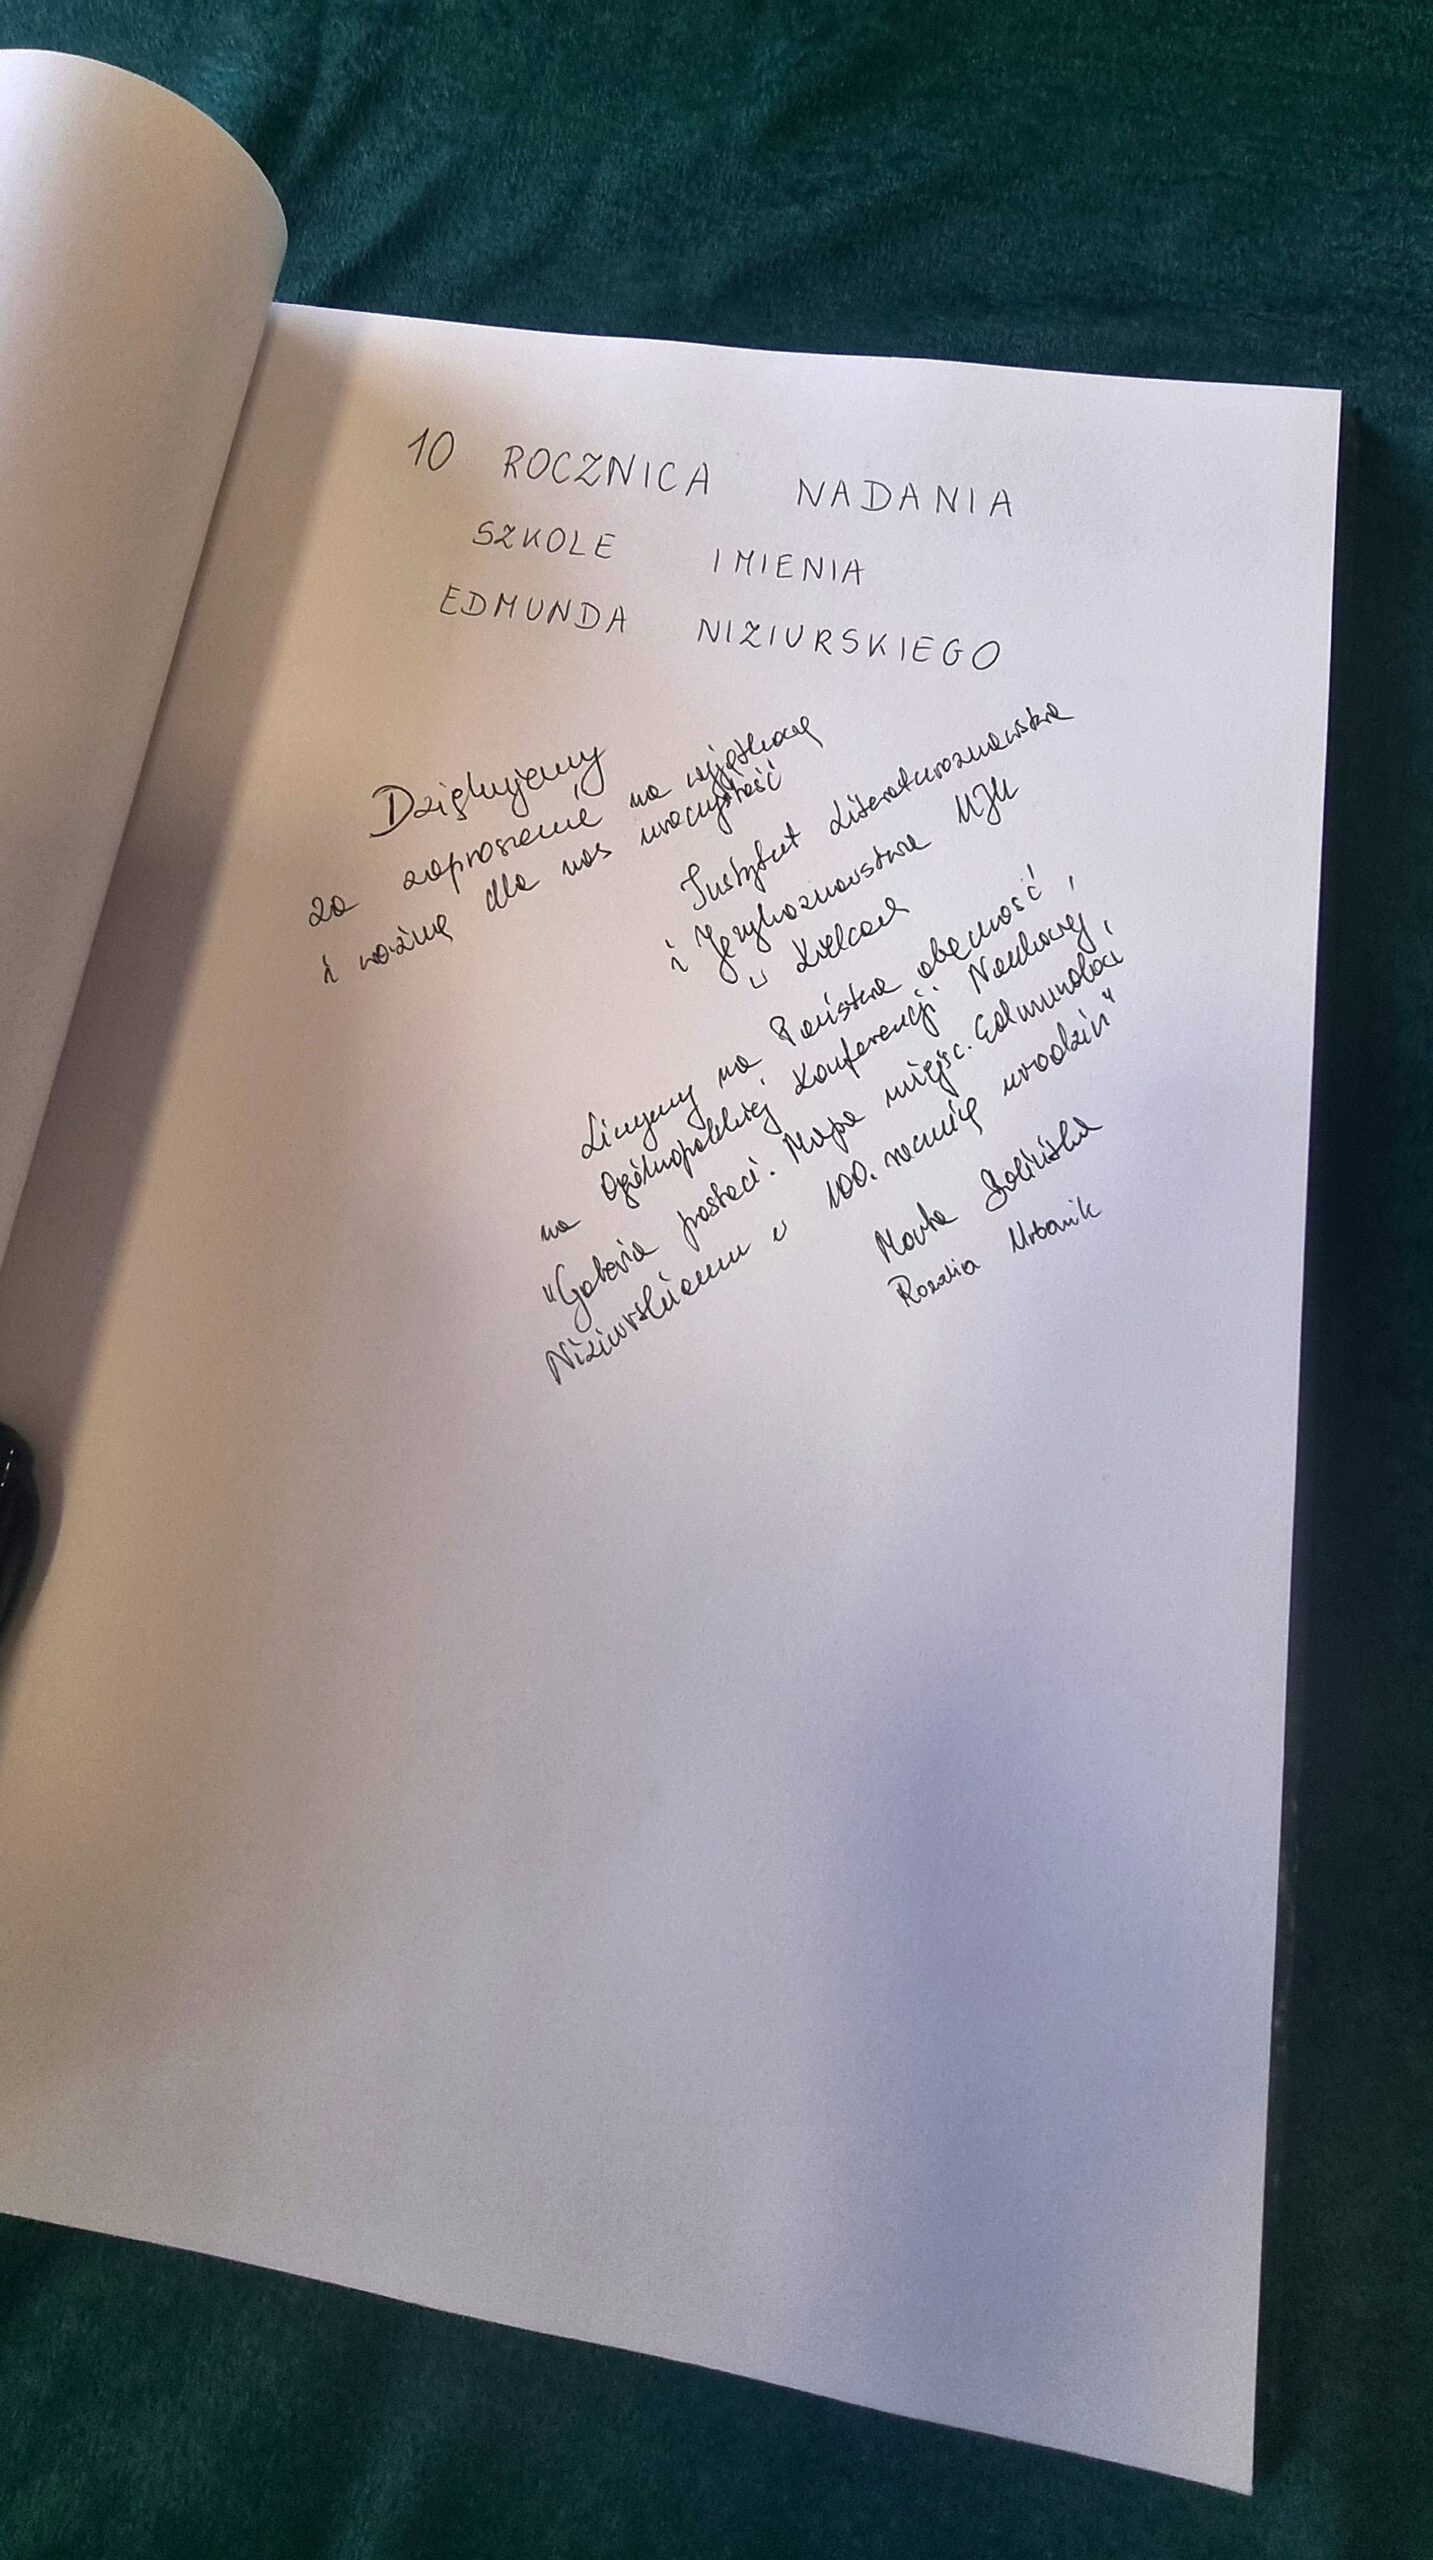 10 ROCZNICA NADANIA
SZKOLE IMIENIA
EDMUNDA NIZIURSKIEGO
Dziękujemy
za zaproszenie na wyjątkową
i ważną dla nas uroczystość
Instytut Literaturoznawstwa
i Językoznawstwa UJK
w Kielcach
Liczymy na Państwa obecność,
na Ogólnopolskiej Konferencji Naukowej,
"Galeria postaci. Mapa miejsc. Edmundowi
Niziurskiemu w 100. rocznicę urodzin"
Marta Bolińska
Rozalia Urbanik